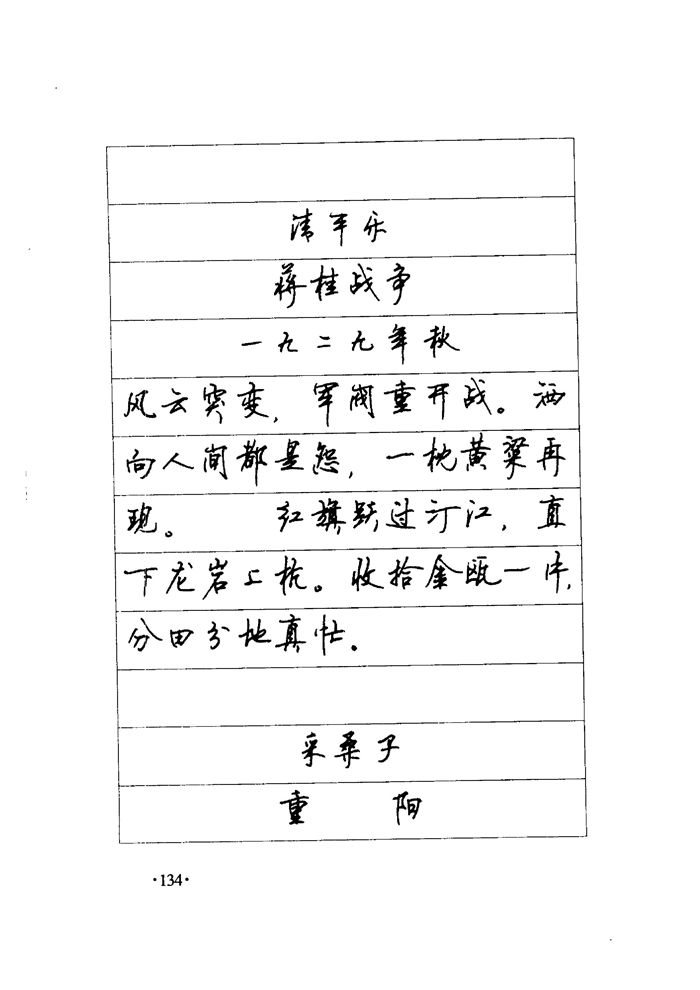 清平乐
蒋桂战争
一九二九年秋
风云突变，军阀重开战。洒
向人间都是怨，一枕黄粱再
现。 红旗跃过汀江，直
下龙岩上杭。收拾金瓯一片，
分田分地真忙。
采桑子
重 阳
·134·